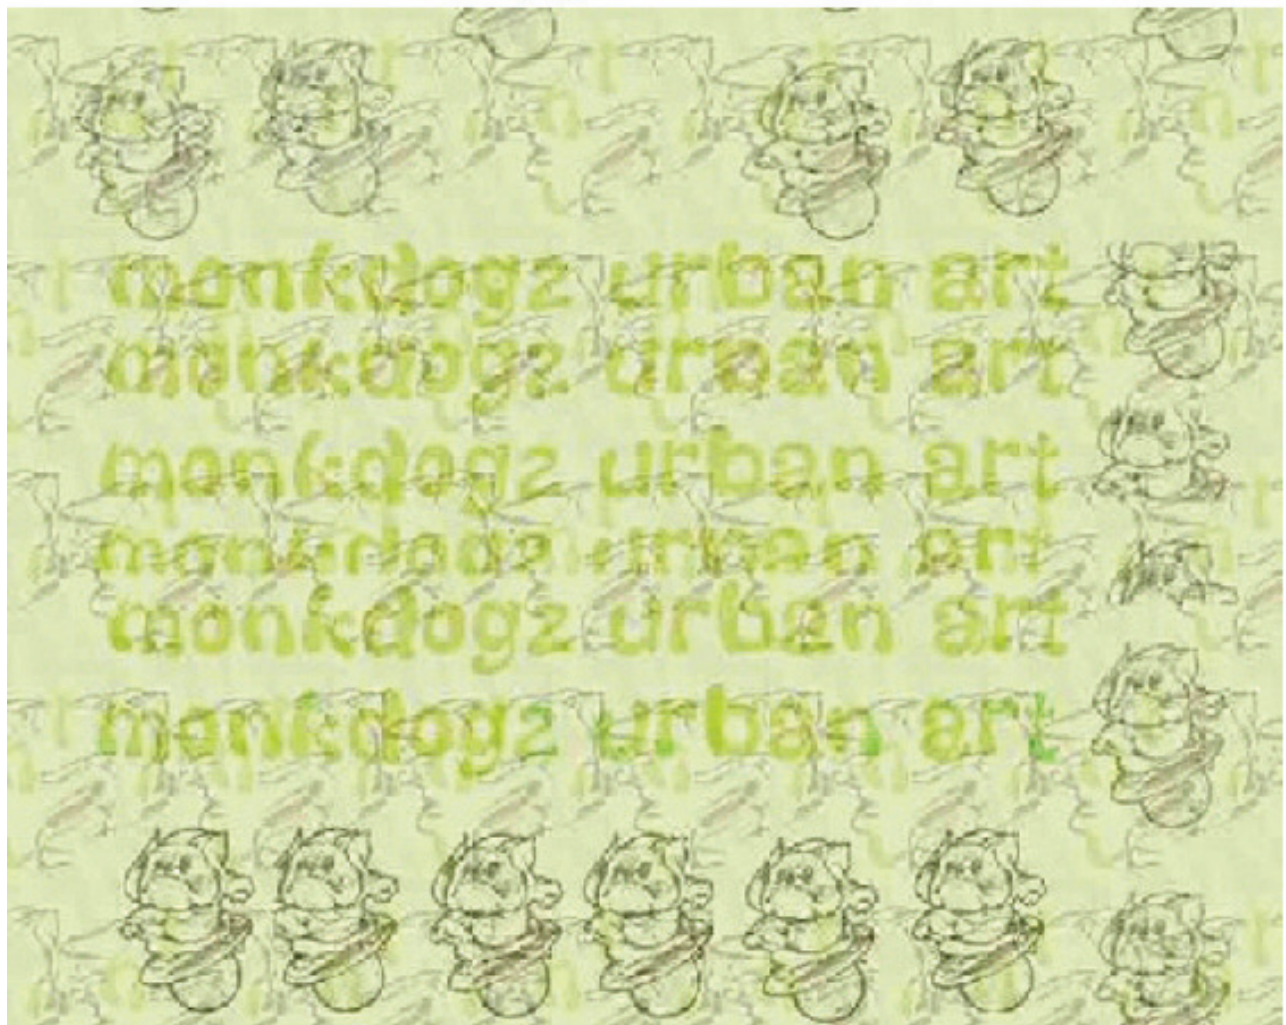 monkdogz urban art
monkdogz urban art
monkdogz urban art
monkdogz urban art
monkdogz urban art
monkdogz urban art